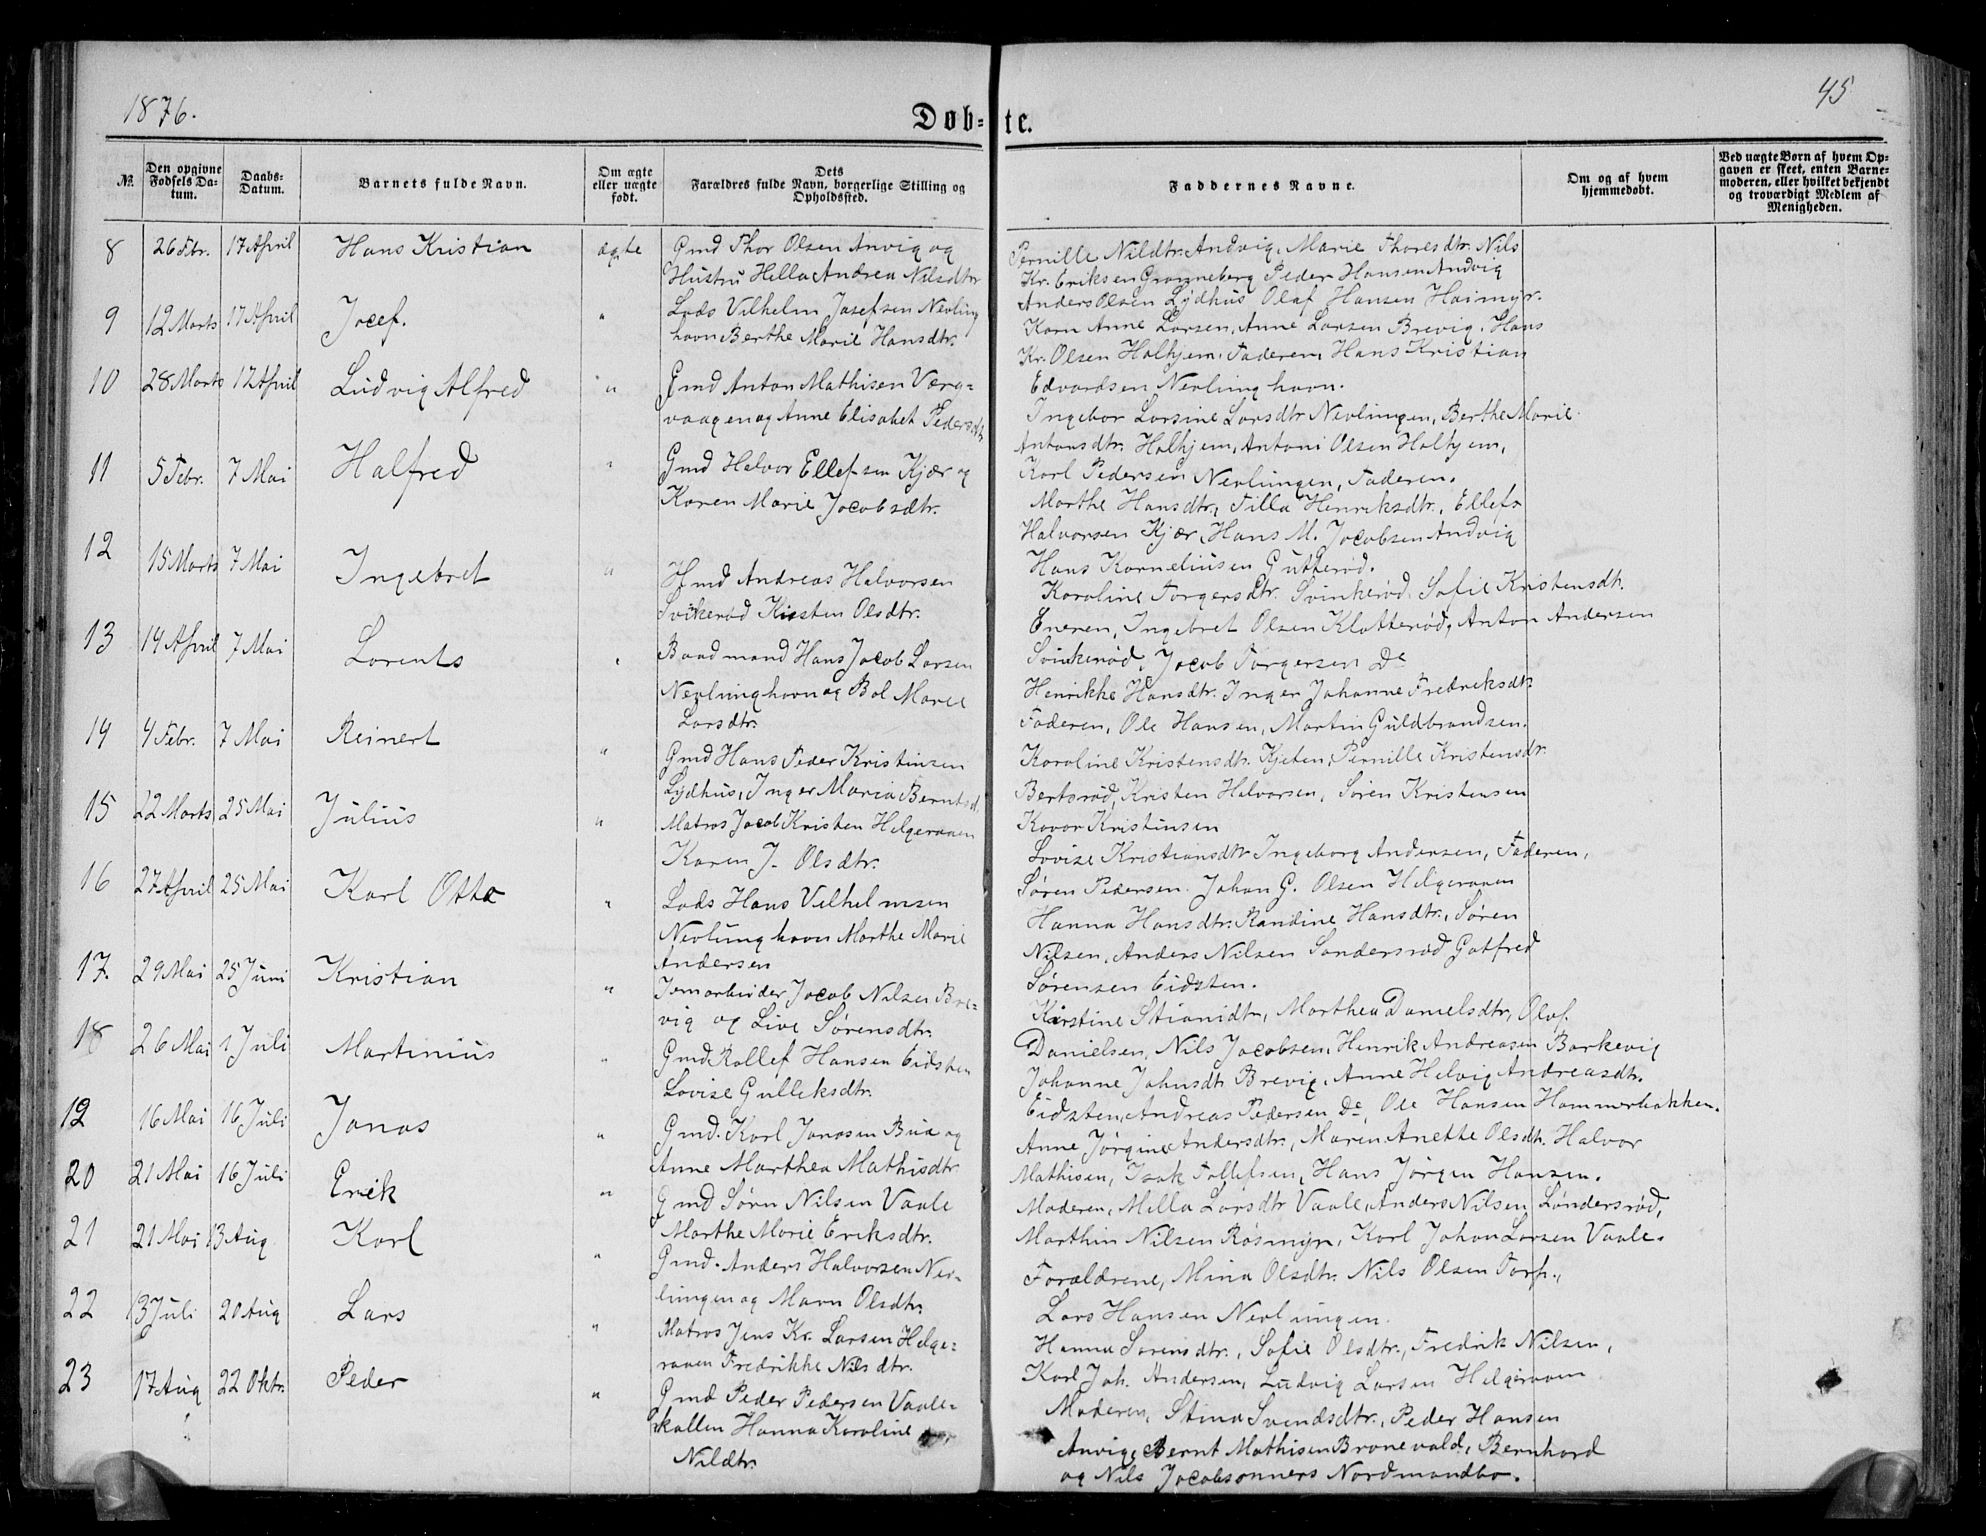 1876.
45
Døb-
te.
№.
Den opgivne
Fødsels Da-
tum.
Daabs-
Datum.
Barnets fulde Navn.
Om ægte
eller uægte
født.
Dets
Farældres fulde Navn, borgerlige Stilling og
Opholdssted.
Faddernes Navne.
Om og af hvem
hjemmedøbt.
Ved uægte Børn af hvem Op-
gaven er skeet, enten Barne-
moderen, eller hvilket bekjendt
og troværdigt Medlem af
Menigheden.
8 26 Fbr. 17 April Hans Kristian ægte Gmd Thor Olsen Anvig og
Hustru Hella Andrea Nilsdtr
Pernille Nildtr. Andvig, Marie Thoresdtr. Nils
Kr. Eriksen Grønneberg Peder Hansen Andvig
Anders Olsen Lydhus Olaf Hansen Haimyr.
9 12 Marts 17 April Josef. " Lods Vilhelm Josefsen Nevling
havn Berthe Marie Hansdtr.
Karn Anne Larsen, Anne Larsen Brevig, Hans
Kr. Olsen Halhjem, Faderen, Hans Kristian
Edvardsen Nevlinghavn.
10 28 Marts 17 April Ludvig Alfred " Gmd Anton Mathisen Værg-
vaagen og Anne Elisabet Pedersdtr
Ingebor Larsine Larsdtr Nevlingen, Berthe Marie
Antonsdtr. Halhjem, Antoni Olsen Halhjem,
Karl Pedersen Nevlungen, Faderen.
11 5 Febr. 7 Mai Halfred " Gmd Halvor Ellefsen Kjær og
Karen Marie Jacobsdtr.
Marthe Hansdtr, Tilla Henriksdtr., Ellef
Halvorsen Kjær, Hans M. Jacobsen Andvig
Hans Korneliusen Gutterød.
12 15 Marts 7 Mai Ingebret " Hmd Andreas Halvorsen
Svikerød Kisten Olsdtr.
Karoline Torgersdtr. Svinkerød Sofie Kristensdt.
Eneren, Ingebret Olsen Klatterød, Anton Andersen
Svinkerød, Jacob Torgersen De
13 14 April 7 Mai Lorents " Baadmand Hans Jacob Larsen
Nevlunghavn og Bol Marie
Larsdtr.
Henrikke Hansdtr. Inger Johanne Fredriksdtr.
Faderen, Ole Hansen, Martin Guldbrandsen.
14 4 Febr. 7 Mai Reinert " Gmd Hans Peder Kristinsen
Lydhus, Inger Maria Berntsd.
Karoline Kristensdtr. Kjeten, Pernille Kristensdtr.
Bertsrød, Kristen Halvorsen, Søren Kristensen
Kavor Kristinsen
15 22 Marts 25 Mai Julius " Matros Jacob Kristen Helgeraaen
Karen J. Olsdtr.
Lovise Kristiansdtr Ingeborg Andersen, Faderen,
Søren Pedersen. Johan G. Olsen Helgeraaen
16 27 April 25 Mai Karl Otto " Lods Hans Vilhelmsen
Nevlunghavn Marthe Marie
Andersen
Hanna Hansdtr. Randine Hansdtr., Søren
Nilsen, Anders Nilsen Søndersrød Gotfred
Sørensen Eidsten.
17. 29 Mai 25 Juni Kristian " Jernarbeider Jacob Nilsen Bre-
vig og Live Sørensdtr.
Kirstine Stianidtr, Marthea Danielsdtr, Olaf
Danielsen, Nils Jacobsen, Henrik Andreasen Barkevig
18 26 Mai 1 Juli Martinius " Gmd. Rollef Hansen Eidsten
Lovise Gulleksdtr.
Johanne Johnsdtr Brevig, Anne Helvig Andreasdtr.
Eidsten, Andreas Pedersen De, Ole Hansen Hammerbakken.
19 16 Mai 16 Juli Jonas " Gmd. Karl Jonasen Bua og
Anne Marthea Mathisdtr
Anne Jørgine Andersdtr., Maren Anette Olsdtr. Halvor
Mathisen, Isak Tollefsen, Hans Jørgen Hansen.
20 21 Mai 16 Juli Erik " Gmd Sørn Nilsen Vaale
Marthe Marie Eriksdtr.
Moderen, Milla Larsdtr Vaale, Anders Nilsen Søndersrød,
Marthin Nilsen Røsmyr, Karl Johan Larsen Vaale.
21 21 Mai 13 Aug Karl " Gmd. Anders Halvorsen Nev-
lungen og Marn Olsdtr.
Forældrene, Mina Olsdtr. Nils Olsen Torp.,
Lars Hansen Nevlungen.
22 13 Juli 20 Aug Lars " Matros Jens Kr. Larsen Helge-
raaen Fredrikke Nilsdtr.
Hanna Sørensdtr., Sofie Olsdtr., Fredrik Nilsen,
Karl Joh. Andersen, Ludvig Larsen Helgeraaen
23 17 Aug 22 Oktr. Peder " Gmd Peder Pedersen Vaale-
skallen Hanna Karoline
Nildtr.
Moderen, Stina Svendsdtr., Peder Hansen
Anvig, Bernt Mathisen Bronevald, Bernhard
og Nils Jacobsonners Nordmandbo.